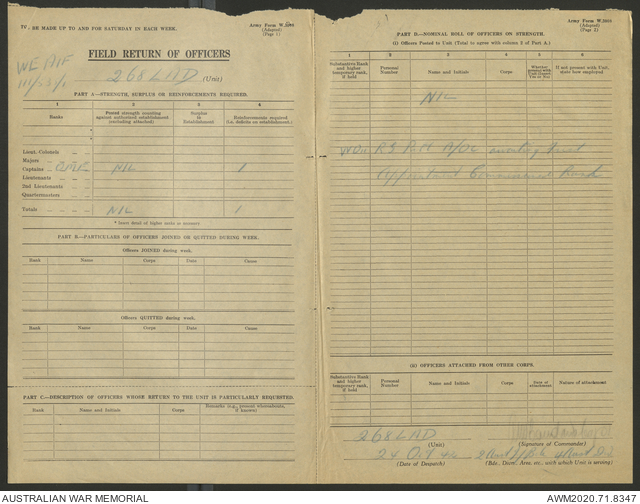 TO BE MADE UP TO AND FOR SATURDAY IN EACH WEEK.
Army Form W.3008
(Adapted)
(Page 1)
FIELD RETURN OF OFFICERS
WE AIF
111/53/1
268 LAD (Unit)
PART A—STRENGTH, SURPLUS OR REINFORCEMENTS REQUIRED.
1 2 3 4
Ranks * Posted strength counting against authorised establishment (excluding attached) Surplus to Establishment Reinforcements required (i.e. deficits on establishment)
Lieut.-Colonels
Majors
Captains NIL 1
Lieutenants
2nd Lieutenants
Quartermasters
Totals NIL 1
* Insert detail of higher ranks as necessary.
PART B.—PARTICULARS OF OFFICERS JOINED OR QUITTED DURING WEEK.
Officers JOINED during week.
Rank Name Corps Date Cause
Officers QUITTED during week.
Rank Name Corps Date Cause
PART C.—DESCRIPTION OF OFFICERS WHOSE RETURN TO THE UNIT IS PARTICULARLY REQUESTED.
Rank Name and Initials Corps Remarks (e.g., present whereabouts, if known)
Army Form W.3008
(Adapted)
(Page 2)
PART D.—NOMINAL ROLL OF OFFICERS ON STRENGTH.
(i) Officers Posted to Unit (Total to agree with column 2 of Part A.)
1 2 3 4 5 6
Substantive Rank and higher temporary rank, if held Personal Number Name and Initials Corps Whether present with Unit (insert Yes or No) If not present with Unit, state how employed
NIL
(ii) OFFICERS ATTACHED FROM OTHER CORPS.
Substantive Rank and higher temporary rank, if held Personal Number Name and Initials Corps Date of Attachment Nature of attachment
268 LAD
(Unit) (Signature of Commander)
24 Oct 42
(Date of Despatch) (Bde., Distct., Area, etc., with which Unit is serving)
AUSTRALIAN WAR MEMORIAL
AWM2020.71.8347